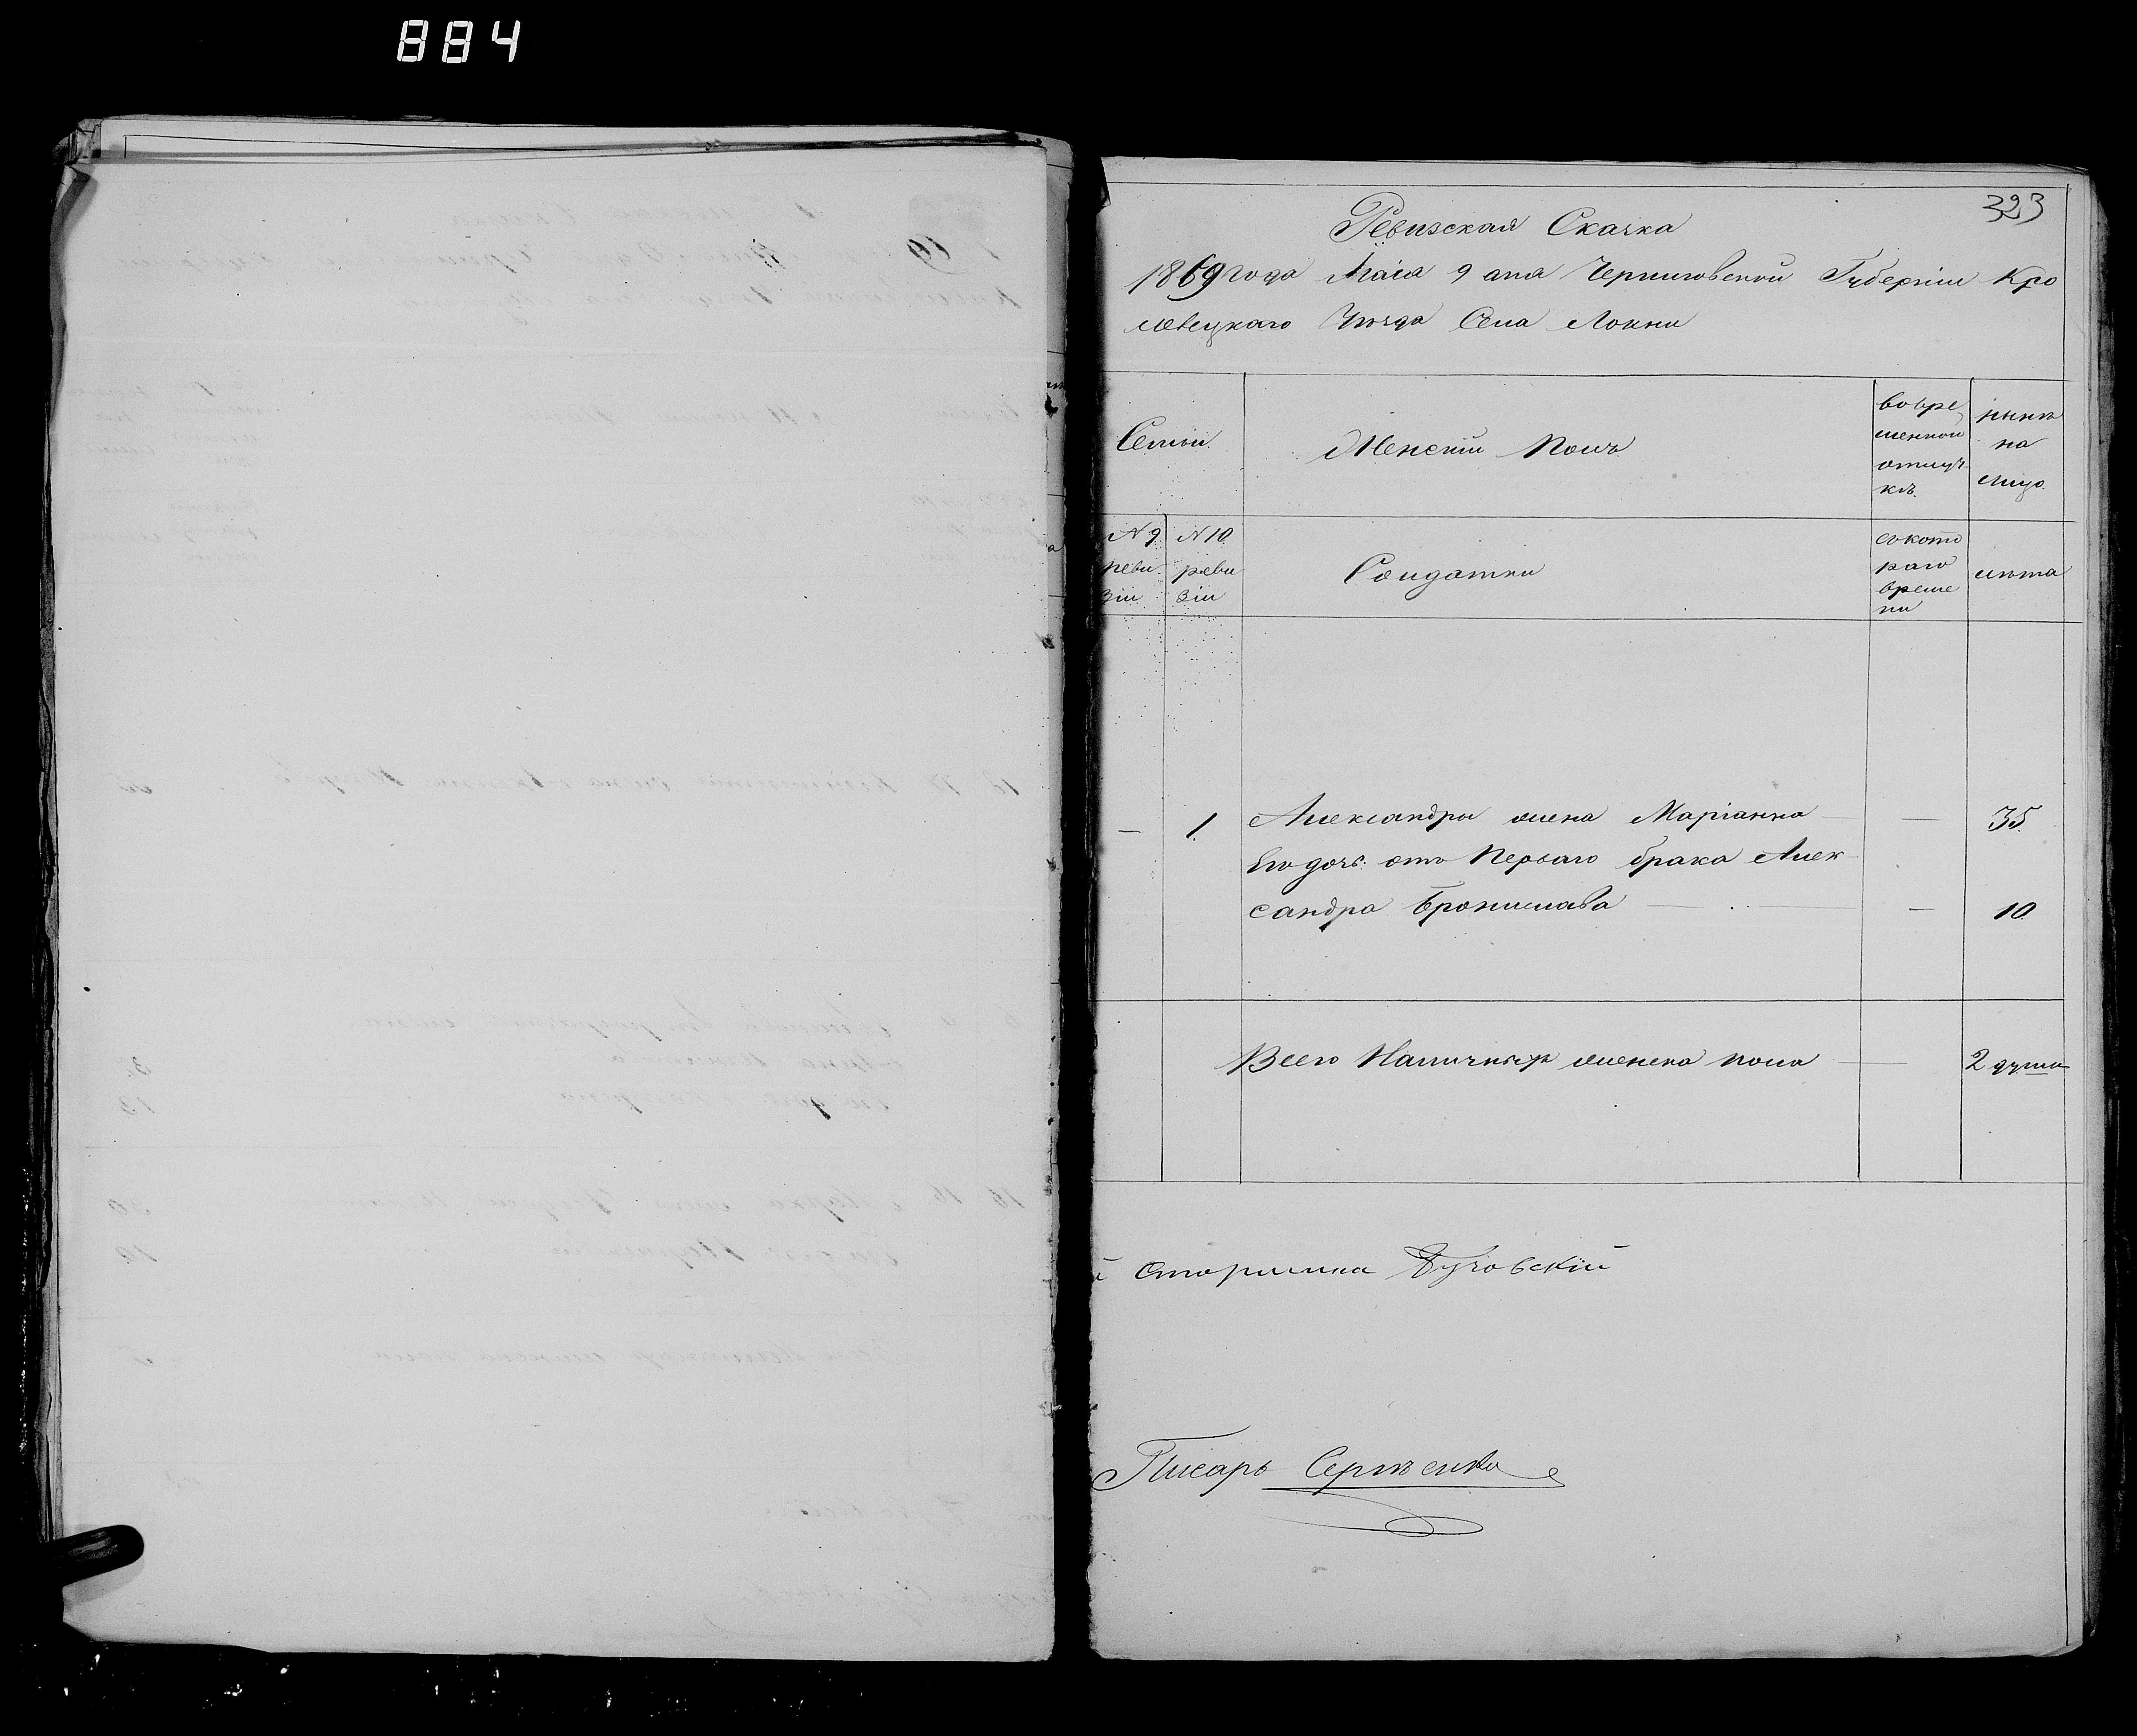 884
323
Ревизская Сказка
1869 года Маіа 9 дня Черниговской Губерніи Кро
левецкаго Уѣзда Села Локни
Семьи.
Женскій Полъ
во вре
менной
отлуч
кѣ.
нынѣ
на
лицо.
N 9
реви
зіи
N 10
реви
зіи
Солдатки
съ кото
раго
време
ни
лѣта
— 1. Александры жена Маріанна — — 35.
Его дочь отъ Перваго брака Алек
сандра Бронислава — — 10.
Всего Наличныхъ женска пола — 2 души
Старшина
Писарь Сергѣенко